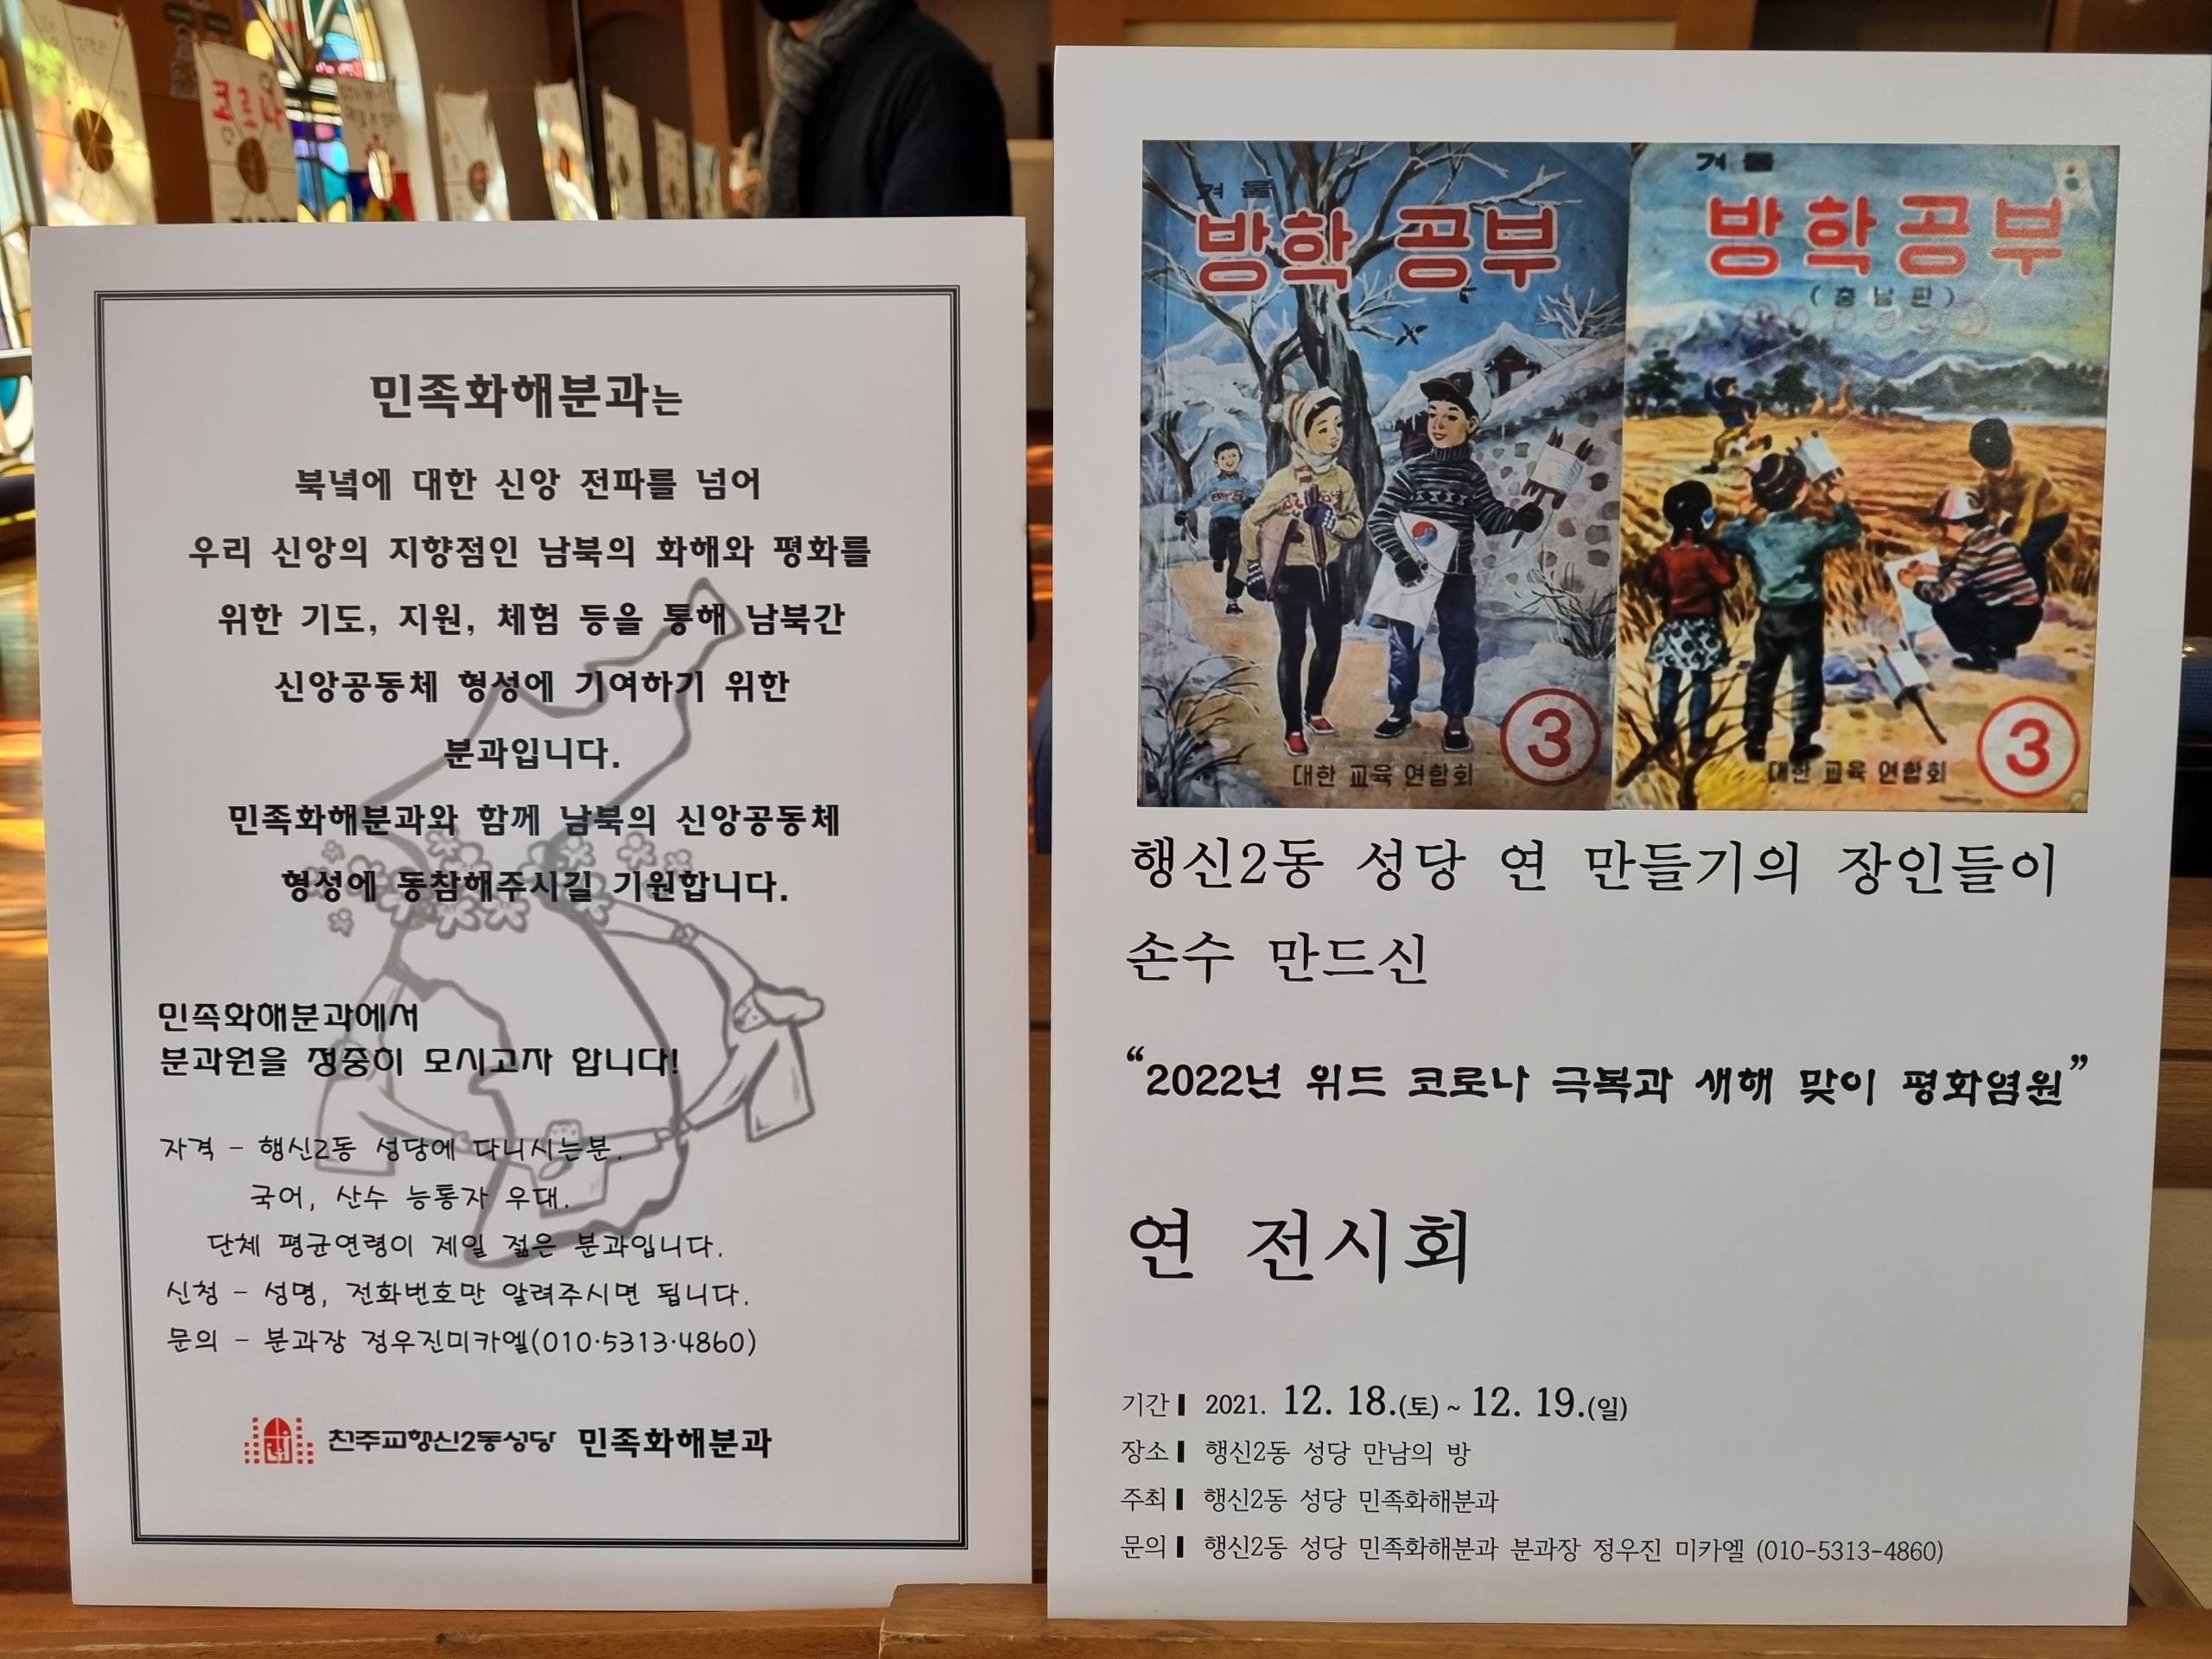 코로나
민족화해분과는
북녘에 대한 신앙 전파를 넘어
우리 신앙의 지향점인 남북의 화해와 평화를
위한 기도, 지원, 체험 등을 통해 남북간
신앙공동체 형성에 기여하기 위한
분과입니다.
민족화해분과와 함께 남북의 신앙공동체
형성에 동참해주시길 기원합니다.
민족화해분과에서
분과원을 정중히 모시고자 합니다!
자격 - 행신2동 성당에 다니시는분.
국어, 산수 능통자 우대.
단체 평균연령이 제일 젊은 분과입니다.
신청 - 성명, 전화번호만 알려주시면 됩니다.
문의 - 분과장 정우진미카엘(010·5313·4860)
천주교행신2동성당 민족화해분과
겨울
방학 공부
3
대한 교육 연합회
겨울
방학공부
(충남판)
3
대한 교육 연합회
행신2동 성당 연 만들기의 장인들이
손수 만드신
“2022년 위드 코로나 극복과 새해 맞이 평화염원”
연 전시회
기간 2021. 12. 18.(토) ~ 12. 19.(일)
장소 행신2동 성당 만남의 방
주최 행신2동 성당 민족화해분과
문의 행신2동 성당 민족화해분과 분과장 정우진 미카엘 (010-5313-4860)